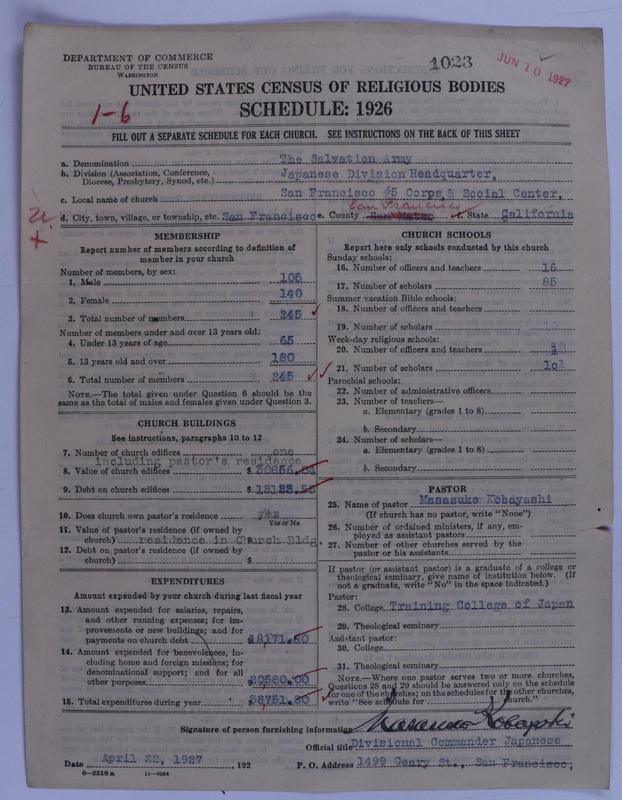 DEPARTMENT OF COMMERCE
BUREAU OF THE CENSUS
WASHINGTON
1023
JUN 10 1927
UNITED STATES CENSUS OF RELIGIOUS BODIES
SCHEDULE: 1926
1-6
FILL OUT A SEPARATE SCHEDULE FOR EACH CHURCH. SEE INSTRUCTIONS ON THE BACK OF THIS SHEET
a. Denomination The Salvation Army
b. Division (Association, Conference, Diocese, Presbytery, Synod, etc.) Japanese Division Headquarter,
c. Local name of church San Francisco #5 Corps & Social Center,
San Francisco
d. City, town, village, or township, etc. San Francisco e. County San Mateo f. State California
MEMBERSHIP
Report number of members according to definition of
member in your church
Number of members, by sex:
1. Male 105
2. Female 140
3. Total number of members 245
Number of members under and over 13 years old:
4. Under 13 years of age 65
5. 13 years old and over 180
6. Total number of members 245
NOTE.—The total given under Question 6 should be the
same as the total of males and females given under Question 3.
CHURCH BUILDINGS
See instructions, paragraphs 10 to 12
7. Number of church edifices one
including pastor's residence
8. Value of church edifices $
9. Debt on church edifices $
10. Does church own pastor's residence yes
Yes or No
11. Value of pastor's residence (if owned by
church) residence in Church Bldg.
12. Debt on pastor's residence (if owned by
church) $
EXPENDITURES
Amount expended by your church during last fiscal year
13. Amount expended for salaries, repairs,
and other running expenses; for im-
provements or new buildings; and for
payments on church debt $18171.80
14. Amount expended for benevolences, in-
cluding home and foreign missions; for
denominational support; and for all
other purposes $20580.00
15. Total expenditures during year $38751.80
CHURCH SCHOOLS
Report here only schools conducted by this church
Sunday schools:
16. Number of officers and teachers 16
17. Number of scholars 85
Summer vacation Bible schools:
18. Number of officers and teachers
19. Number of scholars
Week-day religious schools:
20. Number of officers and teachers
21. Number of scholars 101
Parochial schools:
22. Number of administrative officers
23. Number of teachers—
a. Elementary (grades 1 to 8)
b. Secondary
24. Number of scholars—
a. Elementary (grades 1 to 8)
b. Secondary
PASTOR
25. Name of pastor Masasuke Kobayashi
(If church has no pastor, write "None")
26. Number of ordained ministers, if any, em-
ployed as assistant pastors
27. Number of other churches served by the
pastor or his assistants
If pastor (or assistant pastor) is a graduate of a college or
theological seminary, give name of institution below. (If
not a graduate, write "No" in the space indicated.)
Pastor:
28. College Training College of Japan
29. Theological seminary
Assistant pastor:
30. College
31. Theological seminary
NOTE.—Where one pastor serves two or more churches,
Questions 28 and 29 should be answered only on the schedule
for one of the churches; on the schedules for the other churches,
write "See schedule for church."
Signature of person furnishing information Masasuke Kobayashi
Official title Divisional Commander Japanese
Date April 22, 1927, 192 P. O. Address 1499 Geary St., San Francisco,
8-5518a 11-9034